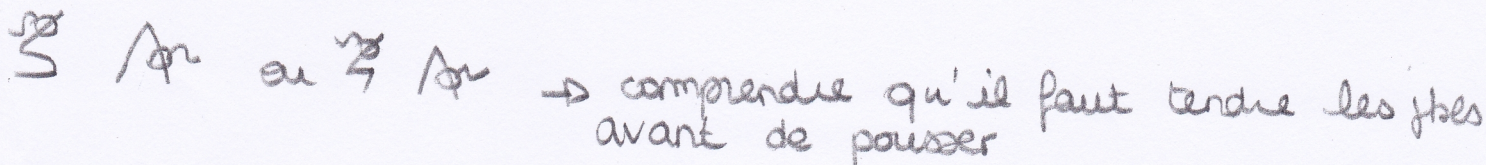 ou → comprendre qu'il faut tendre les jbes
avant de pousser